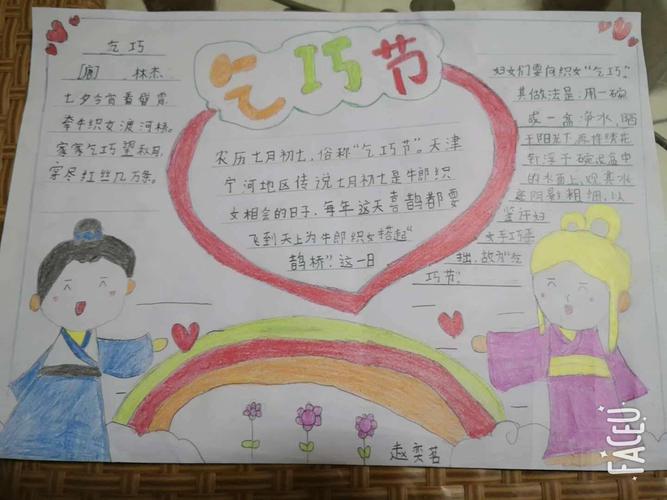 乞巧节
乞巧
[唐] 林杰
七夕今宵看碧霄，
牵牛织女渡河桥。
家家乞巧望秋月，
穿尽红丝几万条。
农历七月初七，俗称“乞巧节”。天津
宁河地区传说七月初七是牛郎织
女相会的日子，每年这天喜鹊都要
飞到天上为牛郎织女搭起“
鹊桥”。这一日
妇女们要向织女“乞巧”。
其做法是：用一碗
或一盆净水，晒
于阳光下，再将绣花
针浮于碗或盆中
的水面上，观其水
底阴影粗细，以
鉴许妇
女手巧手
拙，故为“乞
巧节”
赵奕茗
FACEU